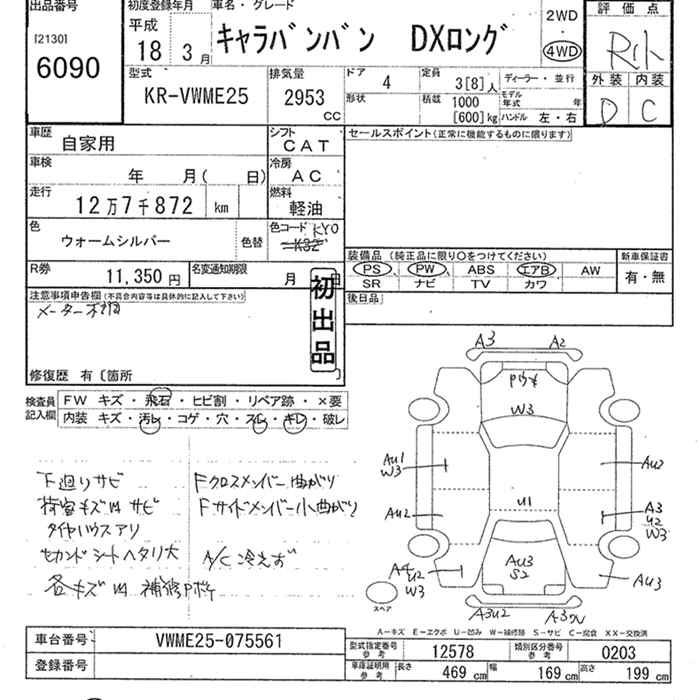 出品番号 初度登録年月 車名・グレード 2WD 評価点
[2130] 平成
6090 18 3月 キャラバンバン DXロング 4WD
外装 内装
D C
型式 排気量 ドア 4 定員 3[8]人 ディーラー・並行
KR-VWME25 2953 CC 形状 積載 1000 [600]kg モデル年式 年
ハンドル 左・右
車歴 自家用 シフト CAT セールスポイント(正常に機能するものに限ります)
車検 年 月( 日) 冷房 AC
走行 12万7千872 km 燃料 軽油
色 ウォームシルバー 色替 色コード KY0
K32
装備品 (純正品に限り○をつけてください) 新車保証書
PS PW ABS エアB AW 有・無
SR ナビ TV カワ
R券 11,350円 名変通知期限 月 日
後日品
注意事項申告欄(不具合内容等は具体的に記入して下さい) 初出品
メーター不明
修復歴 有〔箇所 〕
検査員記入欄 FW キズ・飛石・ヒビ割・リペア跡・×要
内装 キズ・汚レ・コゲ・穴・スレ・キレ・破レ
下廻りサビ Fクロスメンバー曲がり
荷室キズ凹サビ Fサイドメンバー小曲がり
タイヤハウスアリ
セカンドシートヘタリ大 A/C冷えず
各キズ凹 補修
A3 A2
W3
Au1 W3 Au2
U1
Au2 A3 U2 W3
Au3 S2
A4 U2 W3 Au3
スペア A3U2
A-キズ E-エクボ U-凹み W-補修跡 S-サビ C-腐食 XX-交換済
車台番号 VWME25-075561 型式指定番号 参考 12578 類別区分番号 参考 0203
登録番号 車庫証明用 参考 長さ 469 cm 幅 169 cm 高さ 199 cm